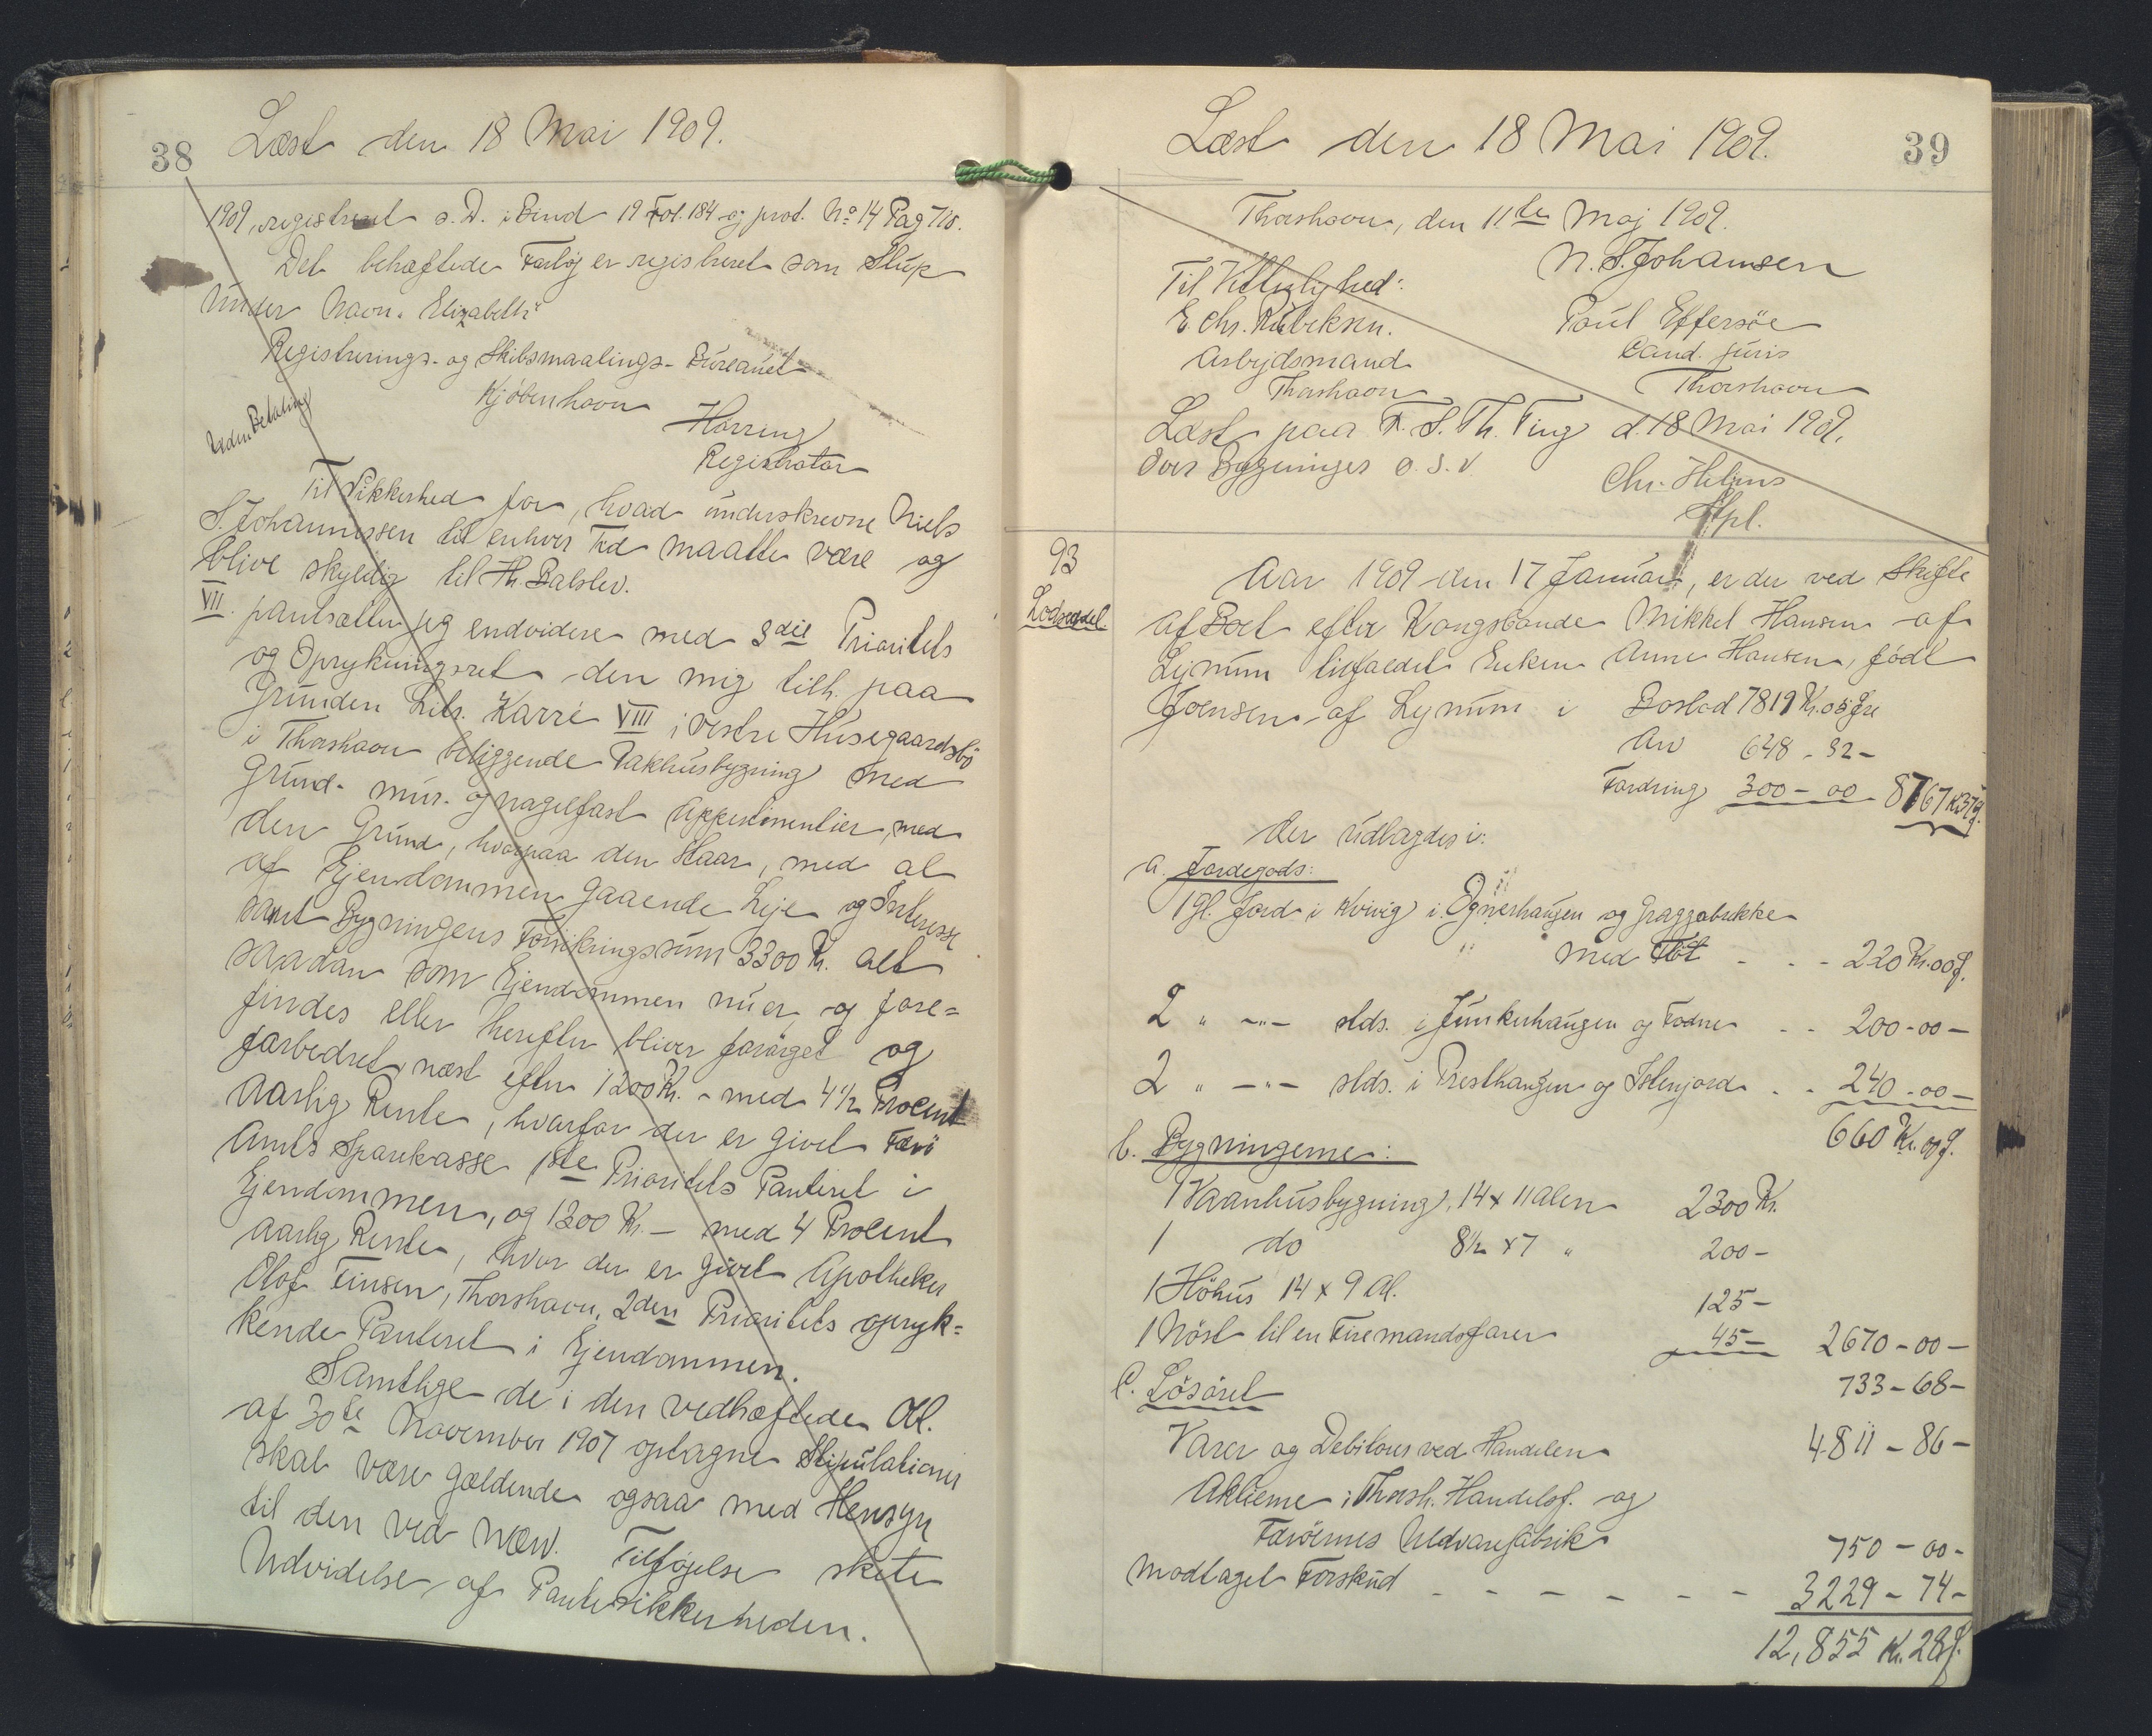 38
Læst den 18 Mai 1909.
1909, registreret s. D. i Bind 19 Fol. 184 og prot. No 14 Pag 710.
Det behæftede Fartøj er registreret som Slup
under Navn "Elizabeth"
Registrerings- og Skibsmaalings-Bureauet
Kjøbenhavn
Herring
Registrator
Uden Betaling
Til Sikkerhed for, hvad underskrevne Niels
S. Johannessen til enhver Tid maatte være og
blive skyldig til Th. Balslev.
VII. pantsætter jeg endvidere med 3die Prioritets
og Oprykningsret den mig tilh. paa
Grunden Litr. Karré VIII i vestre Husegaardsbø
i Thorshavn beliggende Pakhusbygning med
grund- mur- og nagelfast Appertinentier, med
den Grund, hvorpaa den staar, med al
af Ejendommen gaaende Leje og Interesse
samt Bygningens Forsikringssum 3300 Kr. alt
saadan som Ejendommen nu er og fore=
findes eller herefter bliver forøget og
forbedret, næst efter 1200 Kr. - med 4 1/2 Procent
aarlig Rente, hvorfor der er givet Færø
Amts Sparekasse 1ste Prioritets Panteret i
Ejendommen, og 1300 Kr. - med 4 Procent
aarlig Rente, hvor der er givet Apotheker
Olaf Finsen, Thorshavn, 2den Prioritets opryk=
kende Panteret i Ejendommen.
Samtlige de i den vedhæftede Obl.
af 30te November 1907 optagne Stipulationer
skal være gældende ogsaa med Hensyn
til den ved nærv. Tilføjelse skete
Udvidelse af Pantesikkerheden.
39
Læst den 18 Mai 1909.
Thorshavn, den 11te Maj 1909.
N. S. Johannsen
Til Vitterlighed:
E Chr. Rubeksen. Poul Effersøe
Arbejdsmand Cand. juris
Thorshavn Thorshavn
Læst paa F. S. Th. Ting d. 18 Mai 1909.
over Bygninger o. s. v
Chr. Helms
Kpl.
93
Lodseddel
Aar 1909 den 17 Januar, er der ved Skifte
af Boet efter Kongsbonde Mikkel Hansen af
Lynum tilfaldet Enken Anne Hansen, født
Joensen, af Lynum i Boslod 7819 Kr. 05 Øre
Arv 648 - 32 -
Fordring 300 - 00 8767 Kr. 37 Ø.
der udlagdes i:
a. Jordegods:
1 gl. Jord i Kvivig i Ognerhaugen og Graggabrekke
" med Fløt - . . - 220 Kr. 00 Ø.
2 " - " - stds. i Junkerhaugen og Todner . . 200 - 00 -
2 " - " - stds. i Presthaugen og Islenjord . . 240 - 00 -
660 Kr. 00 Ø.
b. Bygningerne:
1 Vaanhusbygning, 14 x 11 Alen 2300 Kr.
1 do 8 1/2 x 7 " 200 -
1 Höhus 14 x 9 Al. 125 -
1 Nöst til en Firemandsfarer 45 - 2670 - 00 -
C. Lösöret 733 - 68 -
Varer og Debitorer ved Handelen 4811 - 86 -
Aktierne i Thorsh. Handelsf. og
Færöernes Uldvarefabrik 750 - 00 -
Modtaget Forskud - - - - - - 3229 - 74 -
12,855 Kr. 28 Ø.